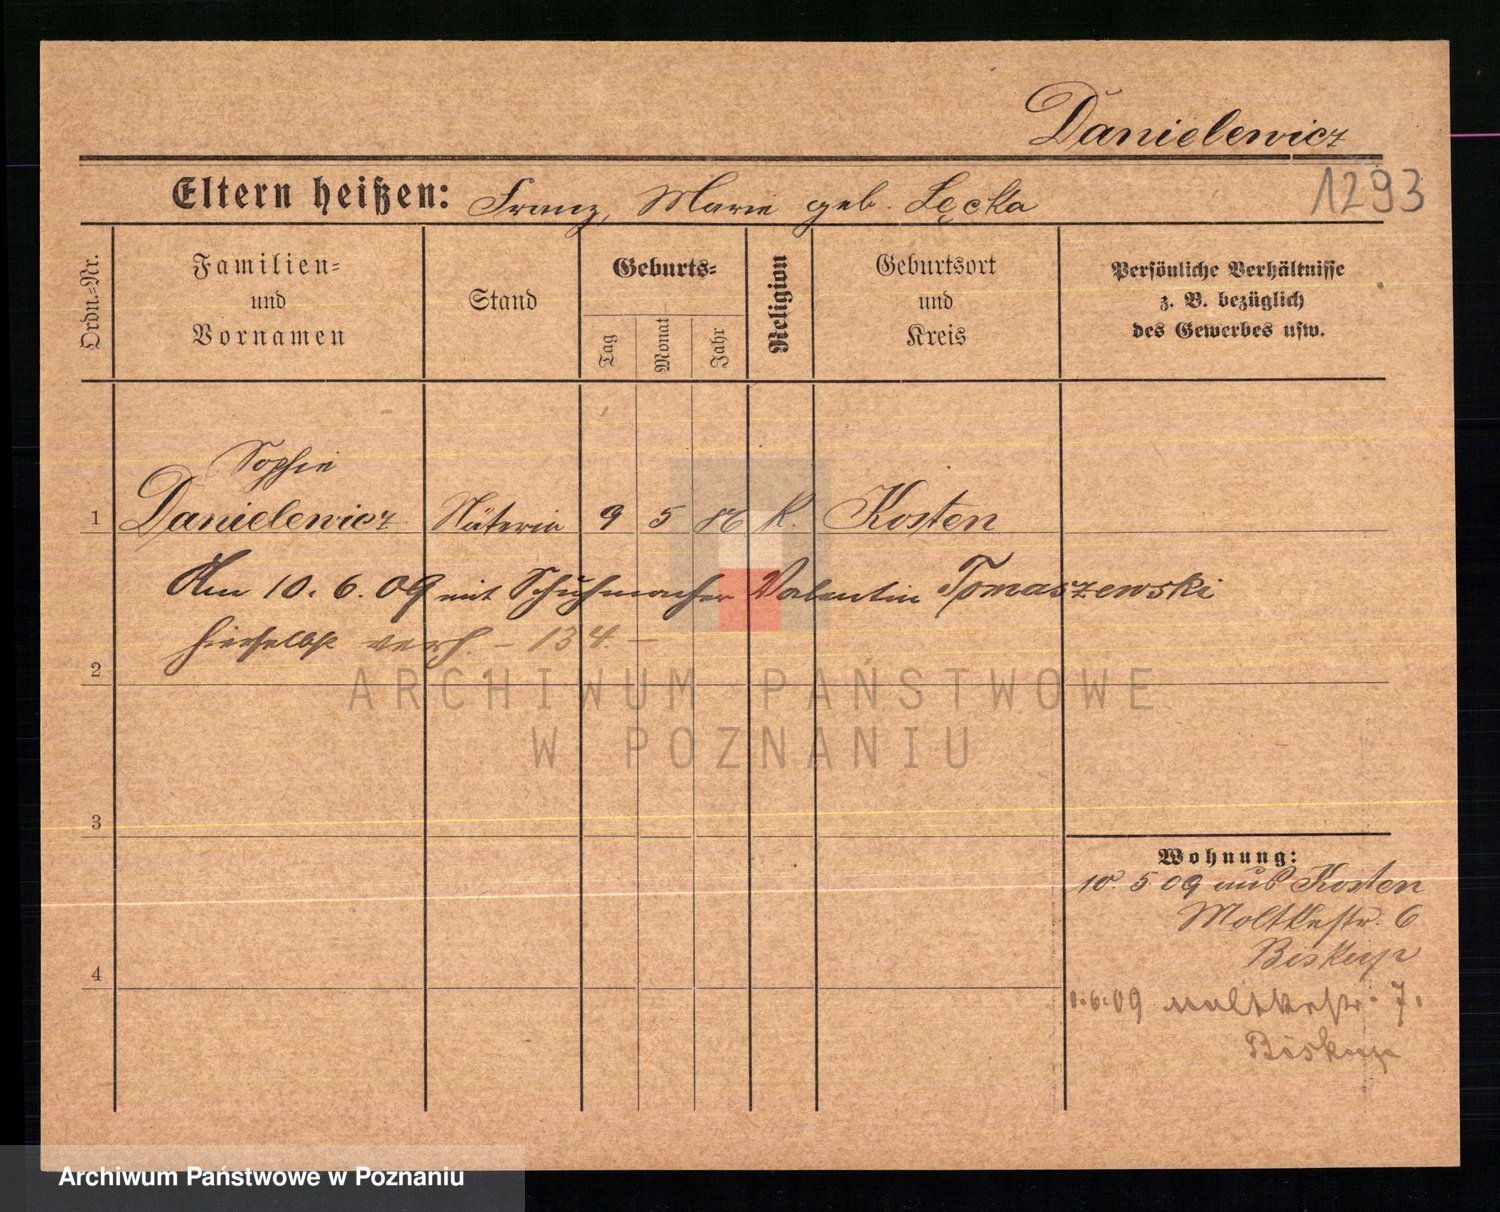 Danielewicz
Eltern heißen: Franz, Marie geb. Łęcka
1293
Ordn.-Nr.
Familien-
und
Vornamen
Stand
Geburts-
Tag
Monat
Jahr
Religion
Geburtsort
und
Kreis
Persönliche Verhältnisse
z. B. bezüglich
des Gewerbes usw.
Sophie
1 Danielewicz Näterin 9 5 86 K. Kosten
Am 10. 6. 09 mit Schuhmacher Valentin Tomaszewski
hierselbst verh. - 134. -
2
3
4
Wohnung:
10. 5 09 aus Kosten
Moltkestr. 6
Biskup
1.6.09 Moltkestr. 7.
Biskup
ARCHIWUM PAŃSTWOWE
W POZNANIU
Archiwum Państwowe w Poznaniu